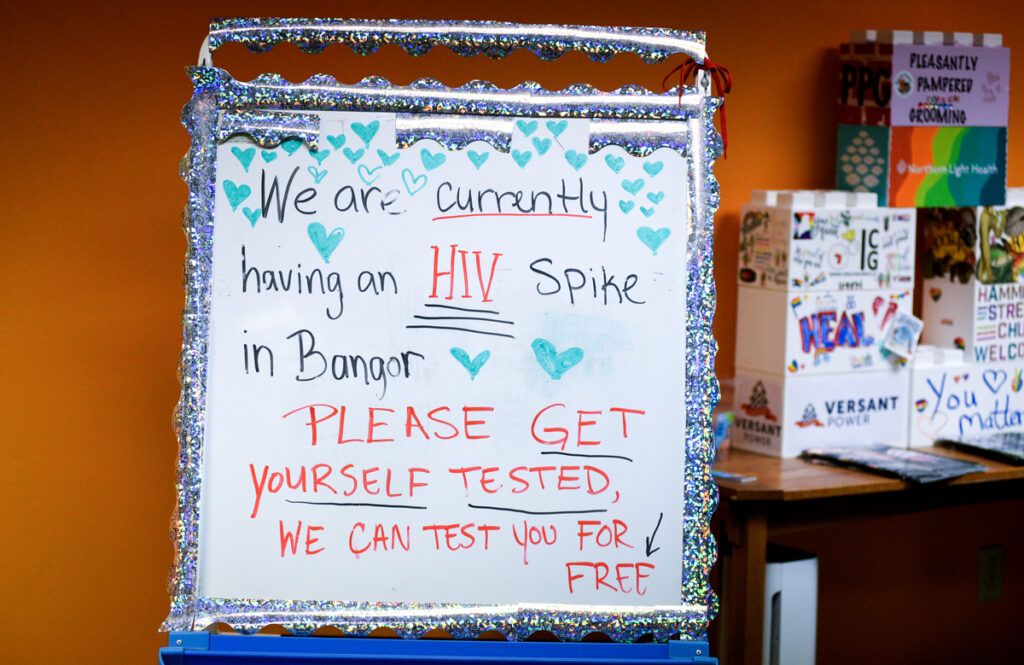 We are currently
having an HIV Spike
in Bangor
PLEASE GET
YOURSELF TESTED,
WE CAN TEST YOU FOR
FREE
PPG
PLEASANTLY
PAMPERED
GROOMING
Northern Light Health
ICG
HEAL
VERSANT
POWER
VERSANT
POWER
HAMM
STRE
CHU
WELCO
You
Matte